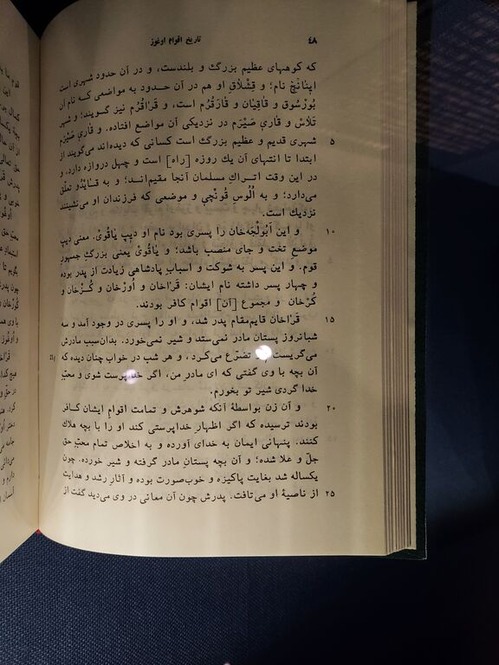 ٤٨
تاریخ اقوام اوغوز
که کوههای عظیم بزرگ و بلندست، و در آن حدود شهری است
اینانج نام؛ و قشلاق او هم در آن حدود به مواضعی که نام آن
بورسوق و قاقیان و قارقرم است، و قراقرم نیز گویند؛ و شهر
تلاس و قاری صیرم در نزدیکی آن مواضع افتاده. و قاری صیرم
٥ شهری قدیم و عظیم بزرگ است کسانی که دیده‌اند می‌گویند از
ابتدا تا انتهای آن یك روزه [راه] است و چهل دروازه دارد. و
در این وقت اتراك مسلمان آنجا مقیم‌اند؛ و به قایدو تعلق
می‌دارد؛ و به الوس قونچی و موضعی که فرزندان او می‌نشینند
نزدیك است.
١٠ و این ابولجه‌خان را پسری بود نام او دیب یاقوی. معنی دیب
موضع تخت و جای منصب باشد؛ و یاقوی یعنی بزرگ جمهور
قوم. و این پسر به شوکت و اسباب پادشاهی زیادت از پدر بوده
و چهار پسر داشته نام ایشان: قراخان و اورخان و کرخان و
کزخان و مجموع [آن] اقوام کافر بودند.
١٥ قراخان قایم‌مقام پدر شد، و او را پسری در وجود آمد و سه
شبانروز پستان مادر نمی‌ستد و شیر نمی‌خورد. بدان‌سبب مادرش
می‌گریست و تضرع می‌کرد، و هر شب در خواب چنان دیده که
آن بچه با وی گفتی که ای مادر من، اگر خداپرست شوی و محب
خدا گردی شیر تو بخورم.
٢٠ و آن زن بواسطهٔ آنکه شوهرش و تمامت اقوام ایشان کافر
بودند ترسیده که اگر اظهار خداپرستی کند او را با بچه هلاك
کنند. پنهانی ایمان به خدای آورده و به اخلاص تمام محب حق
جل و علا شده؛ و آن بچه پستان مادر گرفته و شیر خورده. چون
یکساله شد بغایت پاکیزه و خوب‌صورت بوده و آثار رشد و هدایت
٢٥ از ناصیهٔ او می‌تافت. پدرش چون آن معانی در وی می‌دید گفت از